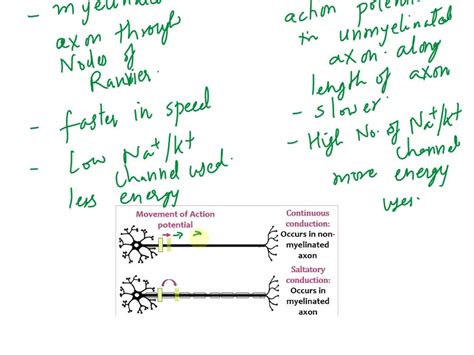 - myelinated
axon through
Nodes of
Ranvier.
- faster in speed
- Low Na+/K+
Channel used.
less energy
action potential
in unmyelinated
axon along
length of axon
- slower.
- High No. of Na+/K+
Channel
more energy
uses.
Movement of Action
potential
Continuous
conduction:
Occurs in non-
myelinated
axon
Saltatory
conduction:
Occurs in
myelinated
axon